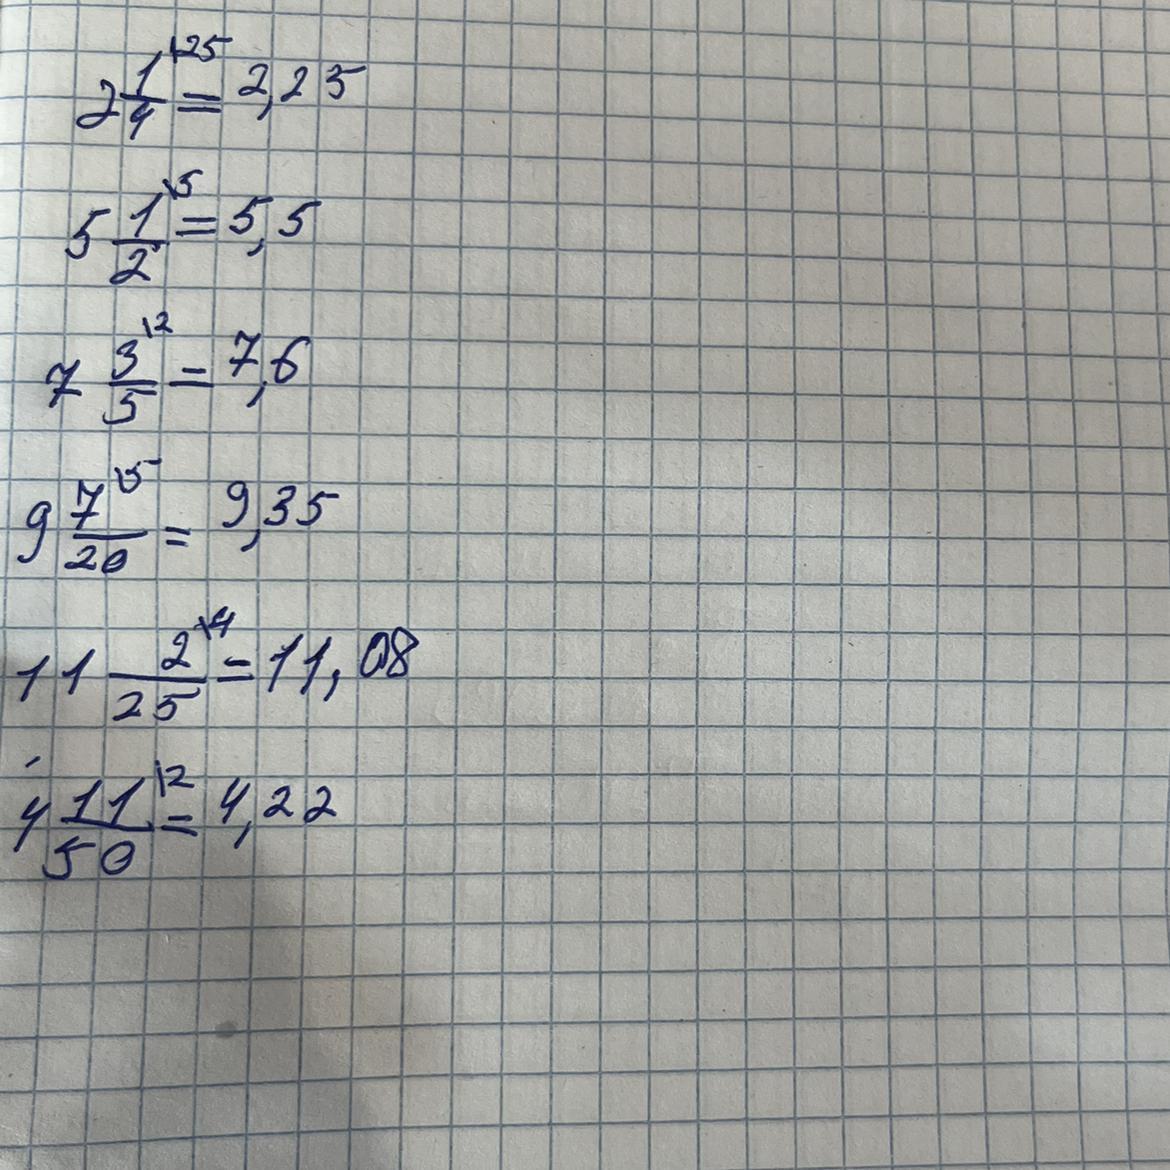 2 1/4 \25 = 2,25
5 1/2 \5 = 5,5
7 3/5 \2 = 7,6
9 7/20 \5 = 9,35
11 2/25 \4 = 11,08
4 11/50 \2 = 4,22